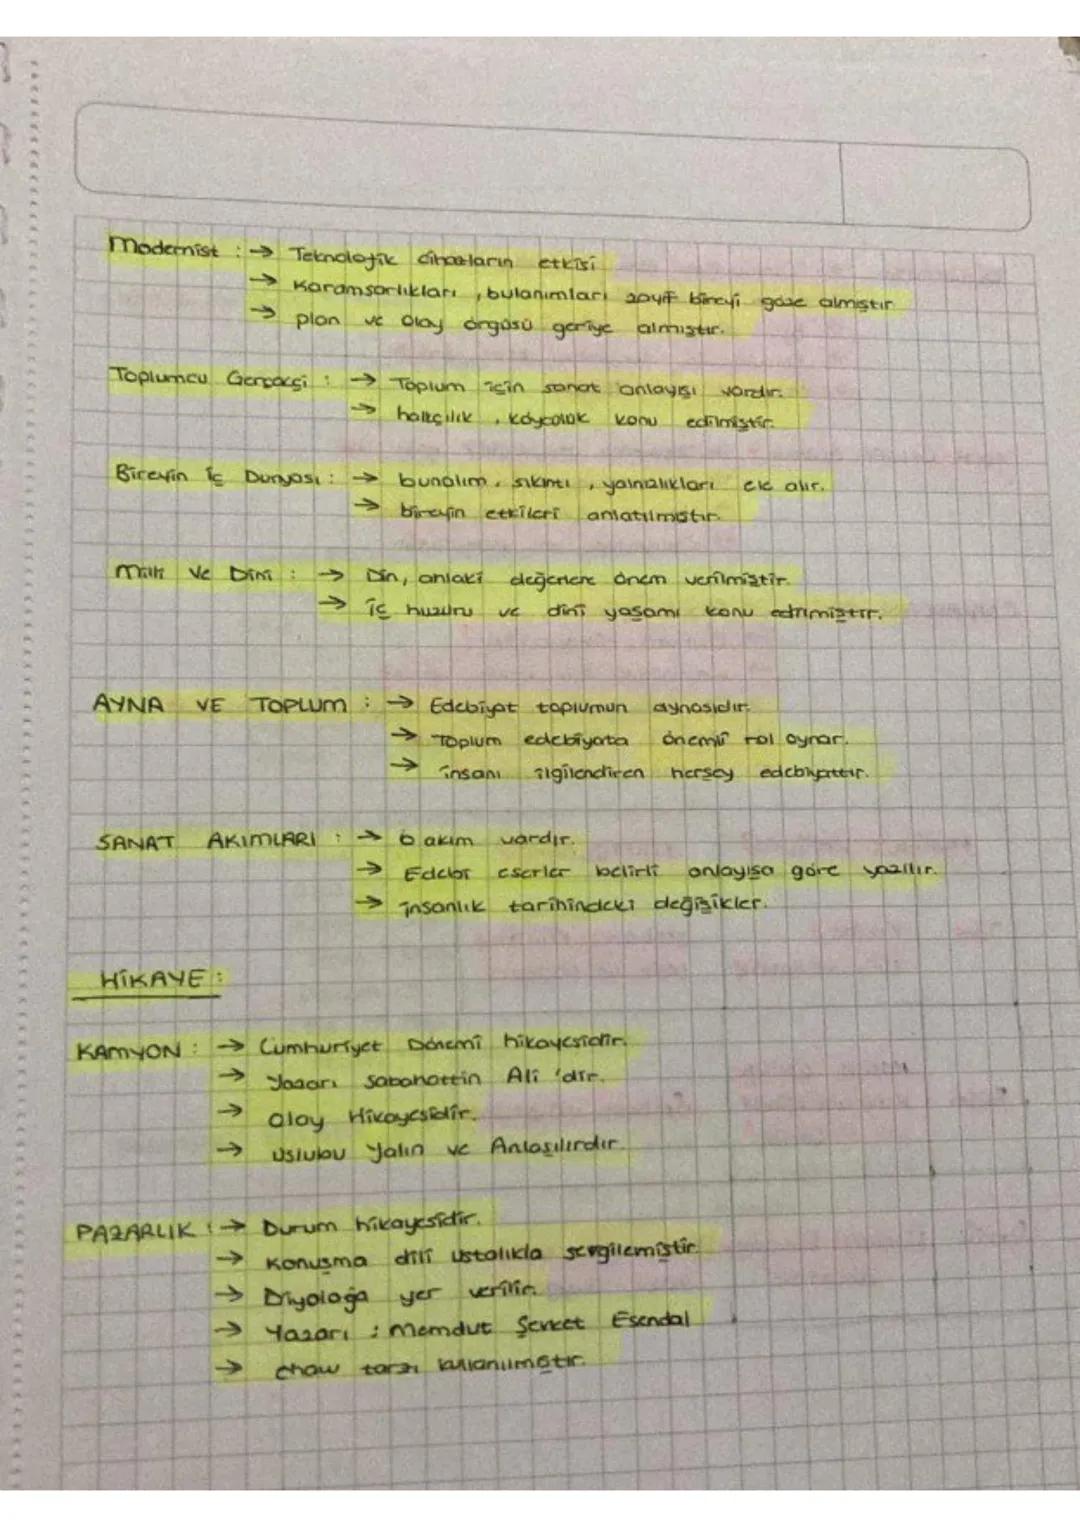 Modernist : → Teknolojik cihazların etkisi
→ Karamsarlıkları , bulanımları zayıf bireyi göze almıştır
→ plan ve olay örgüsü geriye almıştır.
Toplumcu Gerçekçi : → Toplum için sanat anlayışı vardır.
→ halkçılık , köycülük konu edilmiştir.
Bireyin İç Dünyası : → bunalım , sıkıntı , yalnızlıkları ele alır.
→ bireyin etkileri anlatılmıştır.
Milli Ve Dini : → Din, anlaki değerlere önem verilmiştir.
→ iç huzuru ve dini yaşamı konu edinmiştir.
AYNA VE TOPLUM : → Edebiyat toplumun aynasıdır.
→ Toplum edebiyata önemli rol oynar.
→ insanı ilgilendiren herşey edebiyattır.
SANAT AKIMLARI : → 6 akım vardır.
→ Edebi eserler belirli anlayışa göre yazılır.
→ insanlık tarihindeki değişikler.
HİKAYE :
KAMYON : → Cumhuriyet Dönemi hikayesidir.
→ Yazarı Sabahattin Ali 'dir.
→ Olay Hikayesidir.
→ Üslubu Yalın ve Anlaşılırdır.
PAZARLIK : → Durum hikayesidir.
→ Konuşma dili ustalıkla sergilemiştir.
→ Diyaloğa yer verilir.
→ Yazarı : Memduh Şevket Esendal
→ chaw tarzı kullanılmıştır.